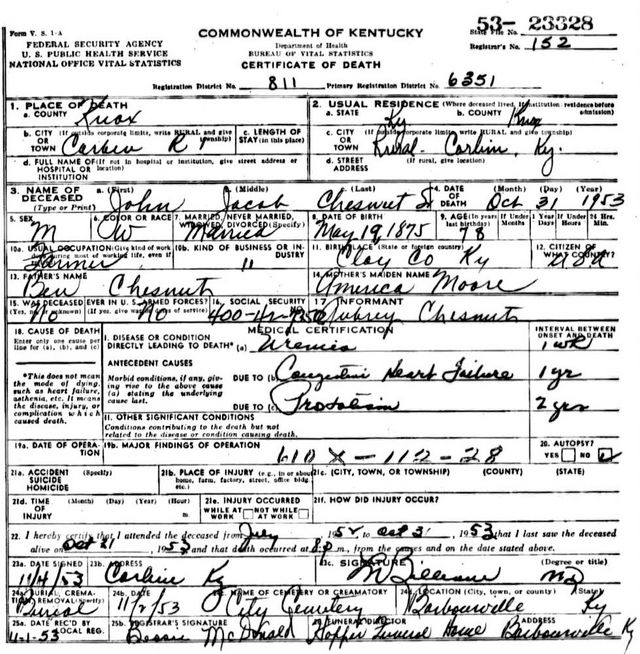 Form V. S. 1-A
COMMONWEALTH OF KENTUCKY
53- 23328
State File No.
FEDERAL SECURITY AGENCY
U. S. PUBLIC HEALTH SERVICE
NATIONAL OFFICE VITAL STATISTICS
Department of Health
BUREAU OF VITAL STATISTICS
CERTIFICATE OF DEATH
Registrar's No. 152
Registration District No. 811 Primary Registration District No. 6351
1. PLACE OF DEATH
a. COUNTY Knox
2. USUAL RESIDENCE (Where deceased lived, If institution: residence before admission)
a. STATE Ky b. COUNTY Knox
b. CITY (If outside corporate limits, write RURAL and give township)
OR TOWN Corbin R
c. LENGTH OF STAY (in this place)
c. CITY (If outside corporate limits, write RURAL and give township)
OR TOWN Rural - Corbin, Ky.
d. FULL NAME OF (If not in hospital or institution, give street address or location)
HOSPITAL OR INSTITUTION
d. STREET ADDRESS (If rural, give location)
3. NAME OF DECEASED (Type or Print)
a. (First) John (Middle) Jacob (Last) Chesnut Sr
4. DATE OF DEATH (Month) (Day) (Year) Oct 31 1953
5. SEX M
6. COLOR OR RACE W
7. MARRIED, NEVER MARRIED, WIDOWED, DIVORCED (Specify) Married
8. DATE OF BIRTH May 19, 1875
9. AGE (In years last birthday) 78 If Under 1 Year Months Days If Under 24 Hrs. Hours Min.
10a. USUAL OCCUPATION (Give kind of work done during most of working life, even if retired) Farmer
10b. KIND OF BUSINESS OR INDUSTRY "
11. BIRTHPLACE (State or foreign country) Clay Co Ky
12. CITIZEN OF WHAT COUNTRY? USA
13. FATHER'S NAME Ben Chesnut
14. MOTHER'S MAIDEN NAME America Moore
15. WAS DECEASED EVER IN U.S. ARMED FORCES?
(Yes, no, or unknown) (If yes, give war or dates of service) No No
16. SOCIAL SECURITY No.
17. INFORMANT Aubrey Chesnut
18. CAUSE OF DEATH
Enter only one cause per line for (a), (b), and (c)
MEDICAL CERTIFICATION
INTERVAL BETWEEN ONSET AND DEATH
I. DISEASE OR CONDITION DIRECTLY LEADING TO DEATH* (a) Uremia 1 wk
*This does not mean the mode of dying, such as heart failure, asthenia, etc. It means the disease, injury, or complication which caused death.
ANTECEDENT CAUSES
Morbid conditions, if any, giving rise to the above cause (a) stating the underlying cause last.
DUE TO (b) Congestive Heart Failure 1 yr
DUE TO (c) Prostatism 2 yrs
II. OTHER SIGNIFICANT CONDITIONS
Conditions contributing to the death but not related to the disease or condition causing death.
19a. DATE OF OPERATION
19b. MAJOR FINDINGS OF OPERATION
610 X - 112 - 28
20. AUTOPSY?
YES NO
21a. ACCIDENT SUICIDE HOMICIDE (Specify)
21b. PLACE OF INJURY (e.g., in or about home, farm, factory, street, office bldg. etc.)
21c. (CITY, TOWN, OR TOWNSHIP) (COUNTY) (STATE)
21d. TIME OF INJURY (Month) (Day) (Year) (Hour) m
21e. INJURY OCCURRED
WHILE AT WORK NOT WHILE AT WORK
21f. HOW DID INJURY OCCUR?
22. I hereby certify that I attended the deceased from July 1952, to Oct 31, 1953 that I last saw the deceased
alive on Oct 31, 1953 and that death occurred at 8 p. m., from the causes and on the date stated above.
23a. DATE SIGNED 11/4/53
23b. ADDRESS Corbin Ky
23c. SIGNATURE (Degree or title) MD
24a. BURIAL, CREMATION, REMOVAL (Specify) Burial
24b. DATE 11/2/53
24c. NAME OF CEMETERY OR CREAMATORY City Cemetery
24d. LOCATION (City, town, or county) (State) Barbourville Ky
25a. DATE REC'D BY LOCAL REG. 11-1-53
25b. REGISTRAR'S SIGNATURE Bessie McDonald
26. FUNERAL DIRECTOR ADDRESS Hopper Funeral Home Barbourville Ky